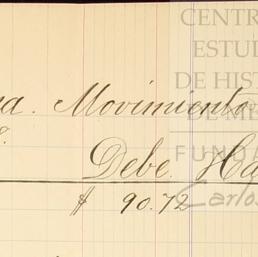 CENTR
ESTUD
DE HIST
DE MÉ
FUNDA
Carlos
a. Movimiento
Debe. Ha
$ 90.72